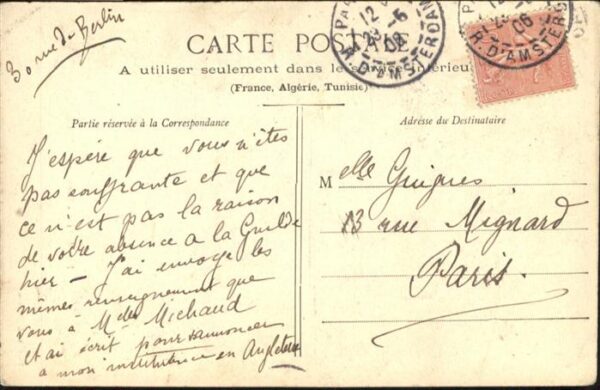 30 rue de Berlin
CARTE POSTALE
A utiliser seulement dans le service intérieur
(France, Algérie, Tunisie)
Partie réservée à la Correspondance
J'espère que vous n'êtes
pas souffrante et que
ce n'est pas la raison
de votre absence a la Guilde
hier - J'ai envoyé les
mêmes renseignement que
vous à Melles Michaud
et ai écrit pour annoncer
a mon institutrice en Angleterre
Adresse du Destinataire
Melle Guigues
13 rue Mignard
Paris.
12
23 -6
06
R. D'AMSTERDAM
06
R. D'AMSTERDAM